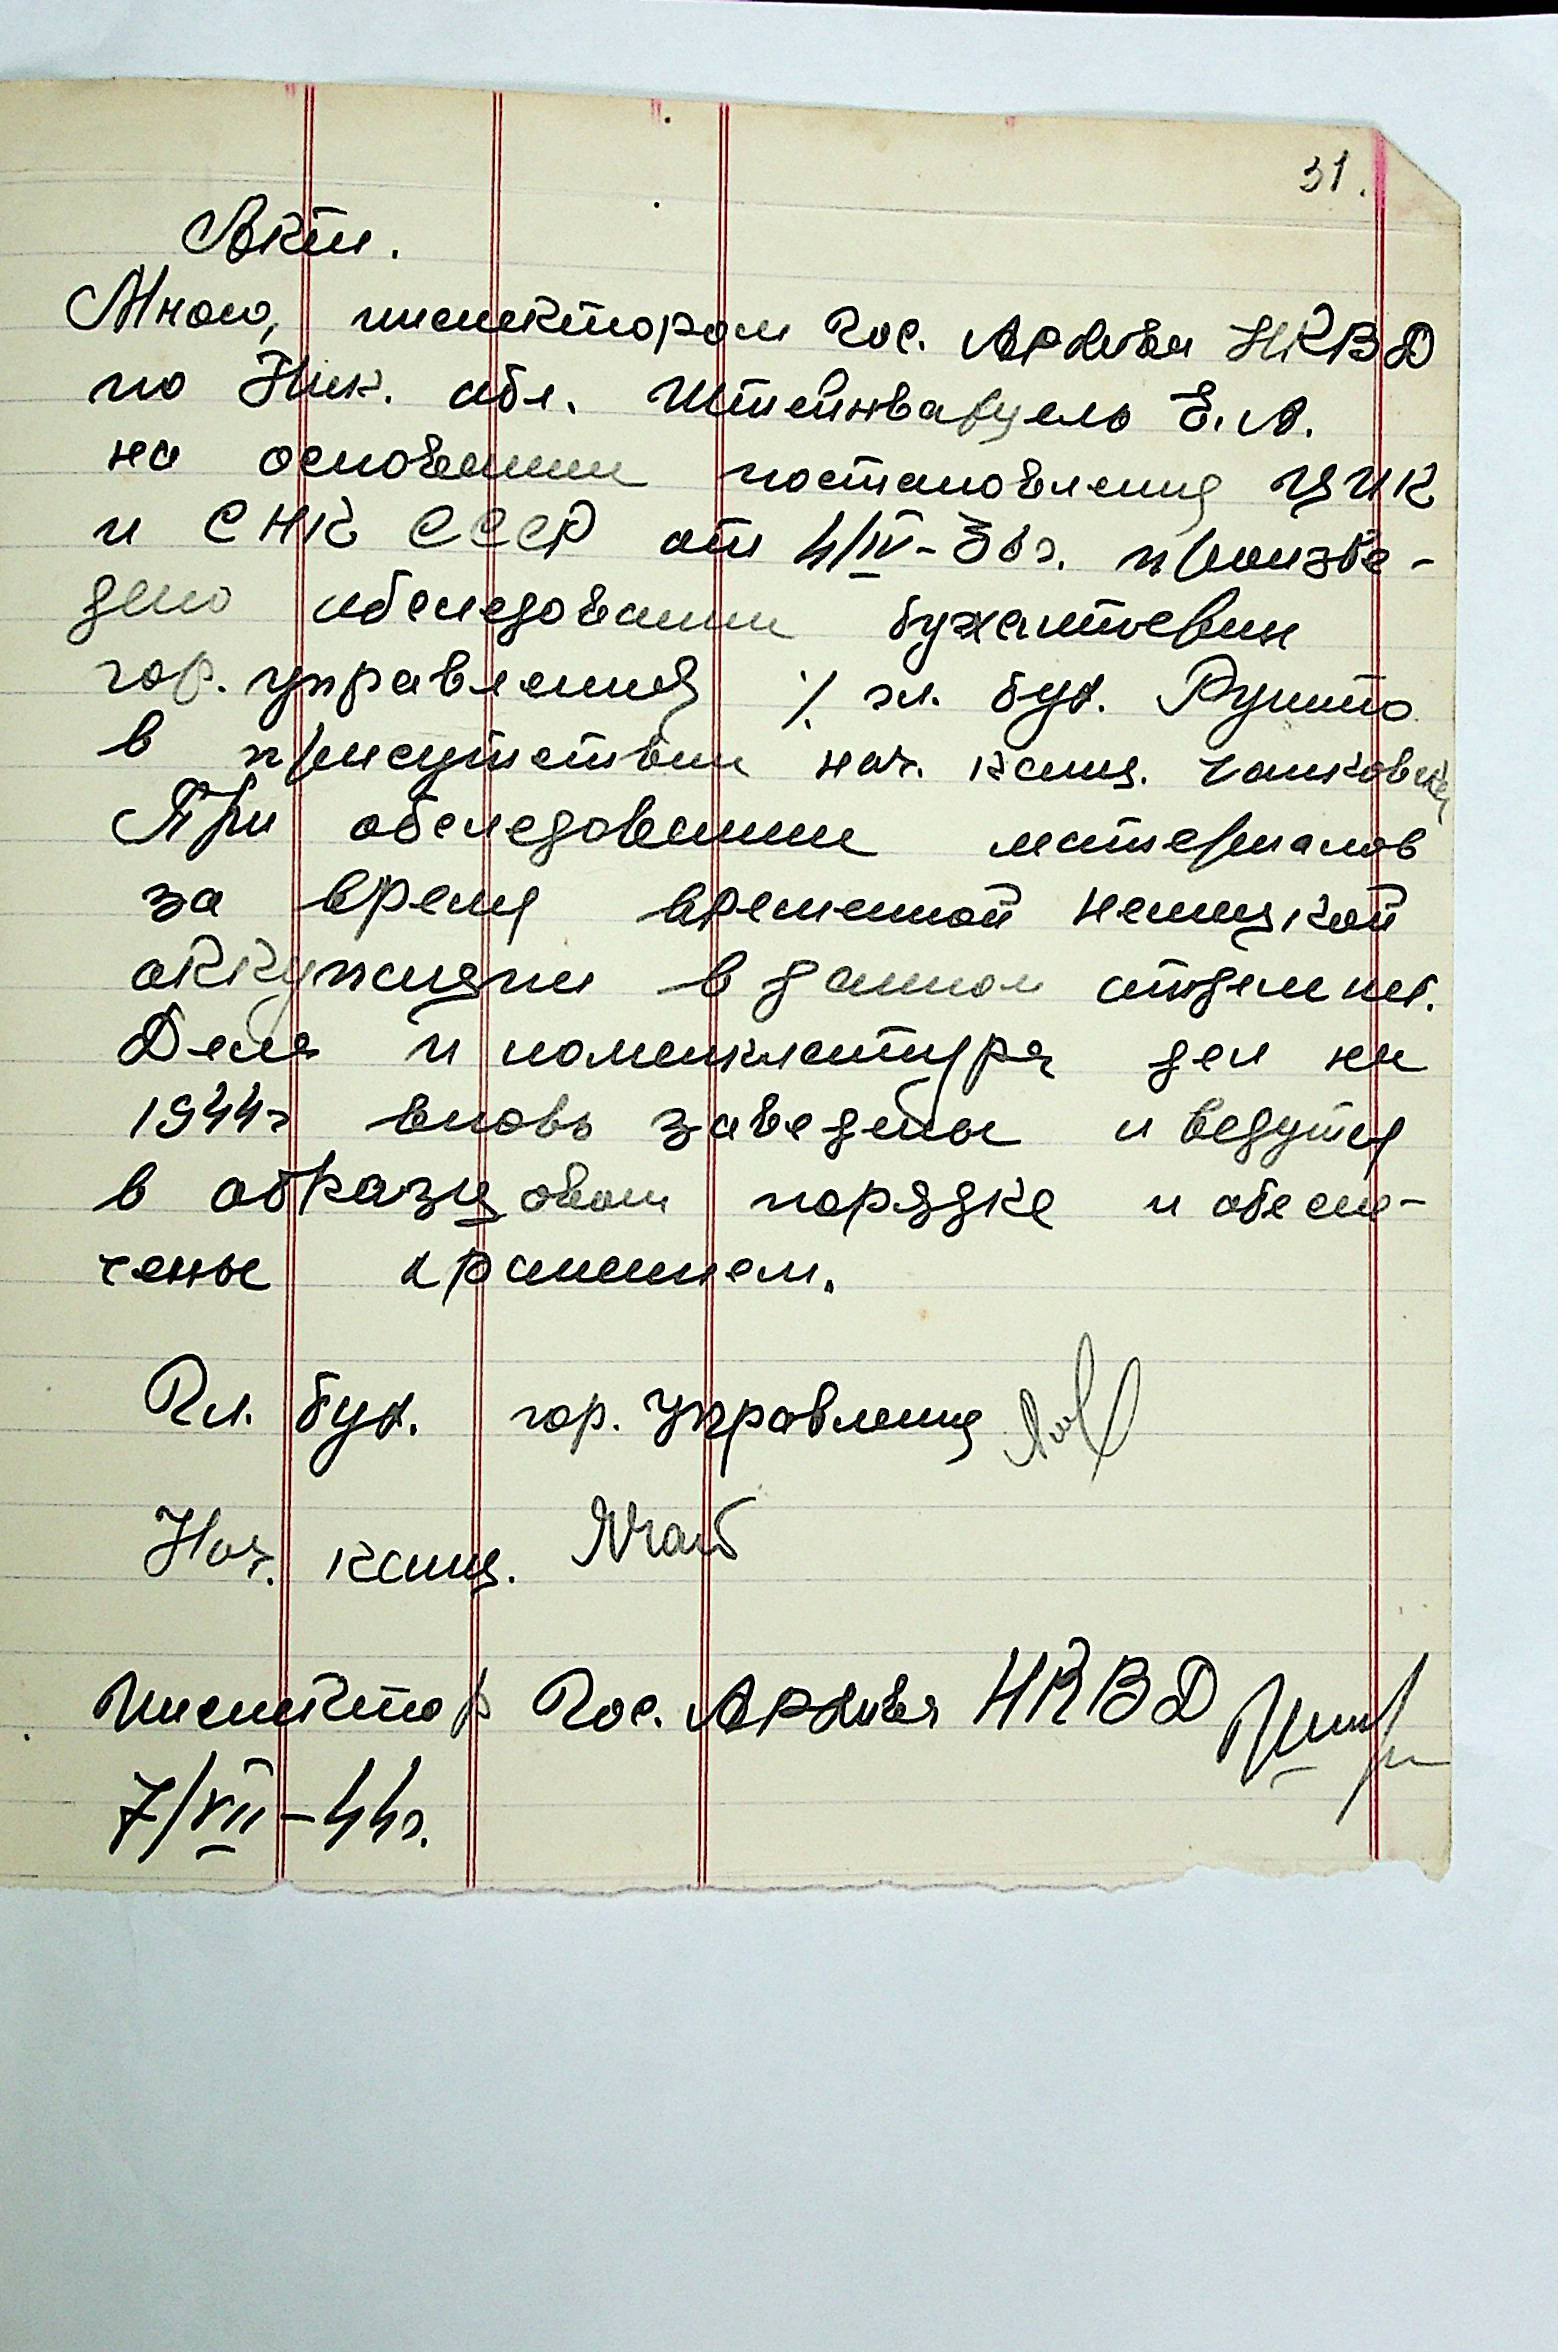 31.
Акт.
Мною, инспектором Гос. Архива НКВД
по Ник. обл. Штейнварцель Е.А.
на основании постановления ЦИК
и СНК СССР от 4/IV-36г. произве-
дено обследовании бухалтерии
гор. управления гл. бух. Рушто
в присутствии нач. канц.
При обследовании материалов
за время временной немецкой
оккупации в данном отделе нет.
Дела и номенклатура дел на
1944г вновь заведены и ведутся
в образцовом порядке и обеспе-
чены хранением.
Гл. бух. гор. управления
Нач. канц.
Инспектор Гос. Архива НКВД
7/VII-44г.